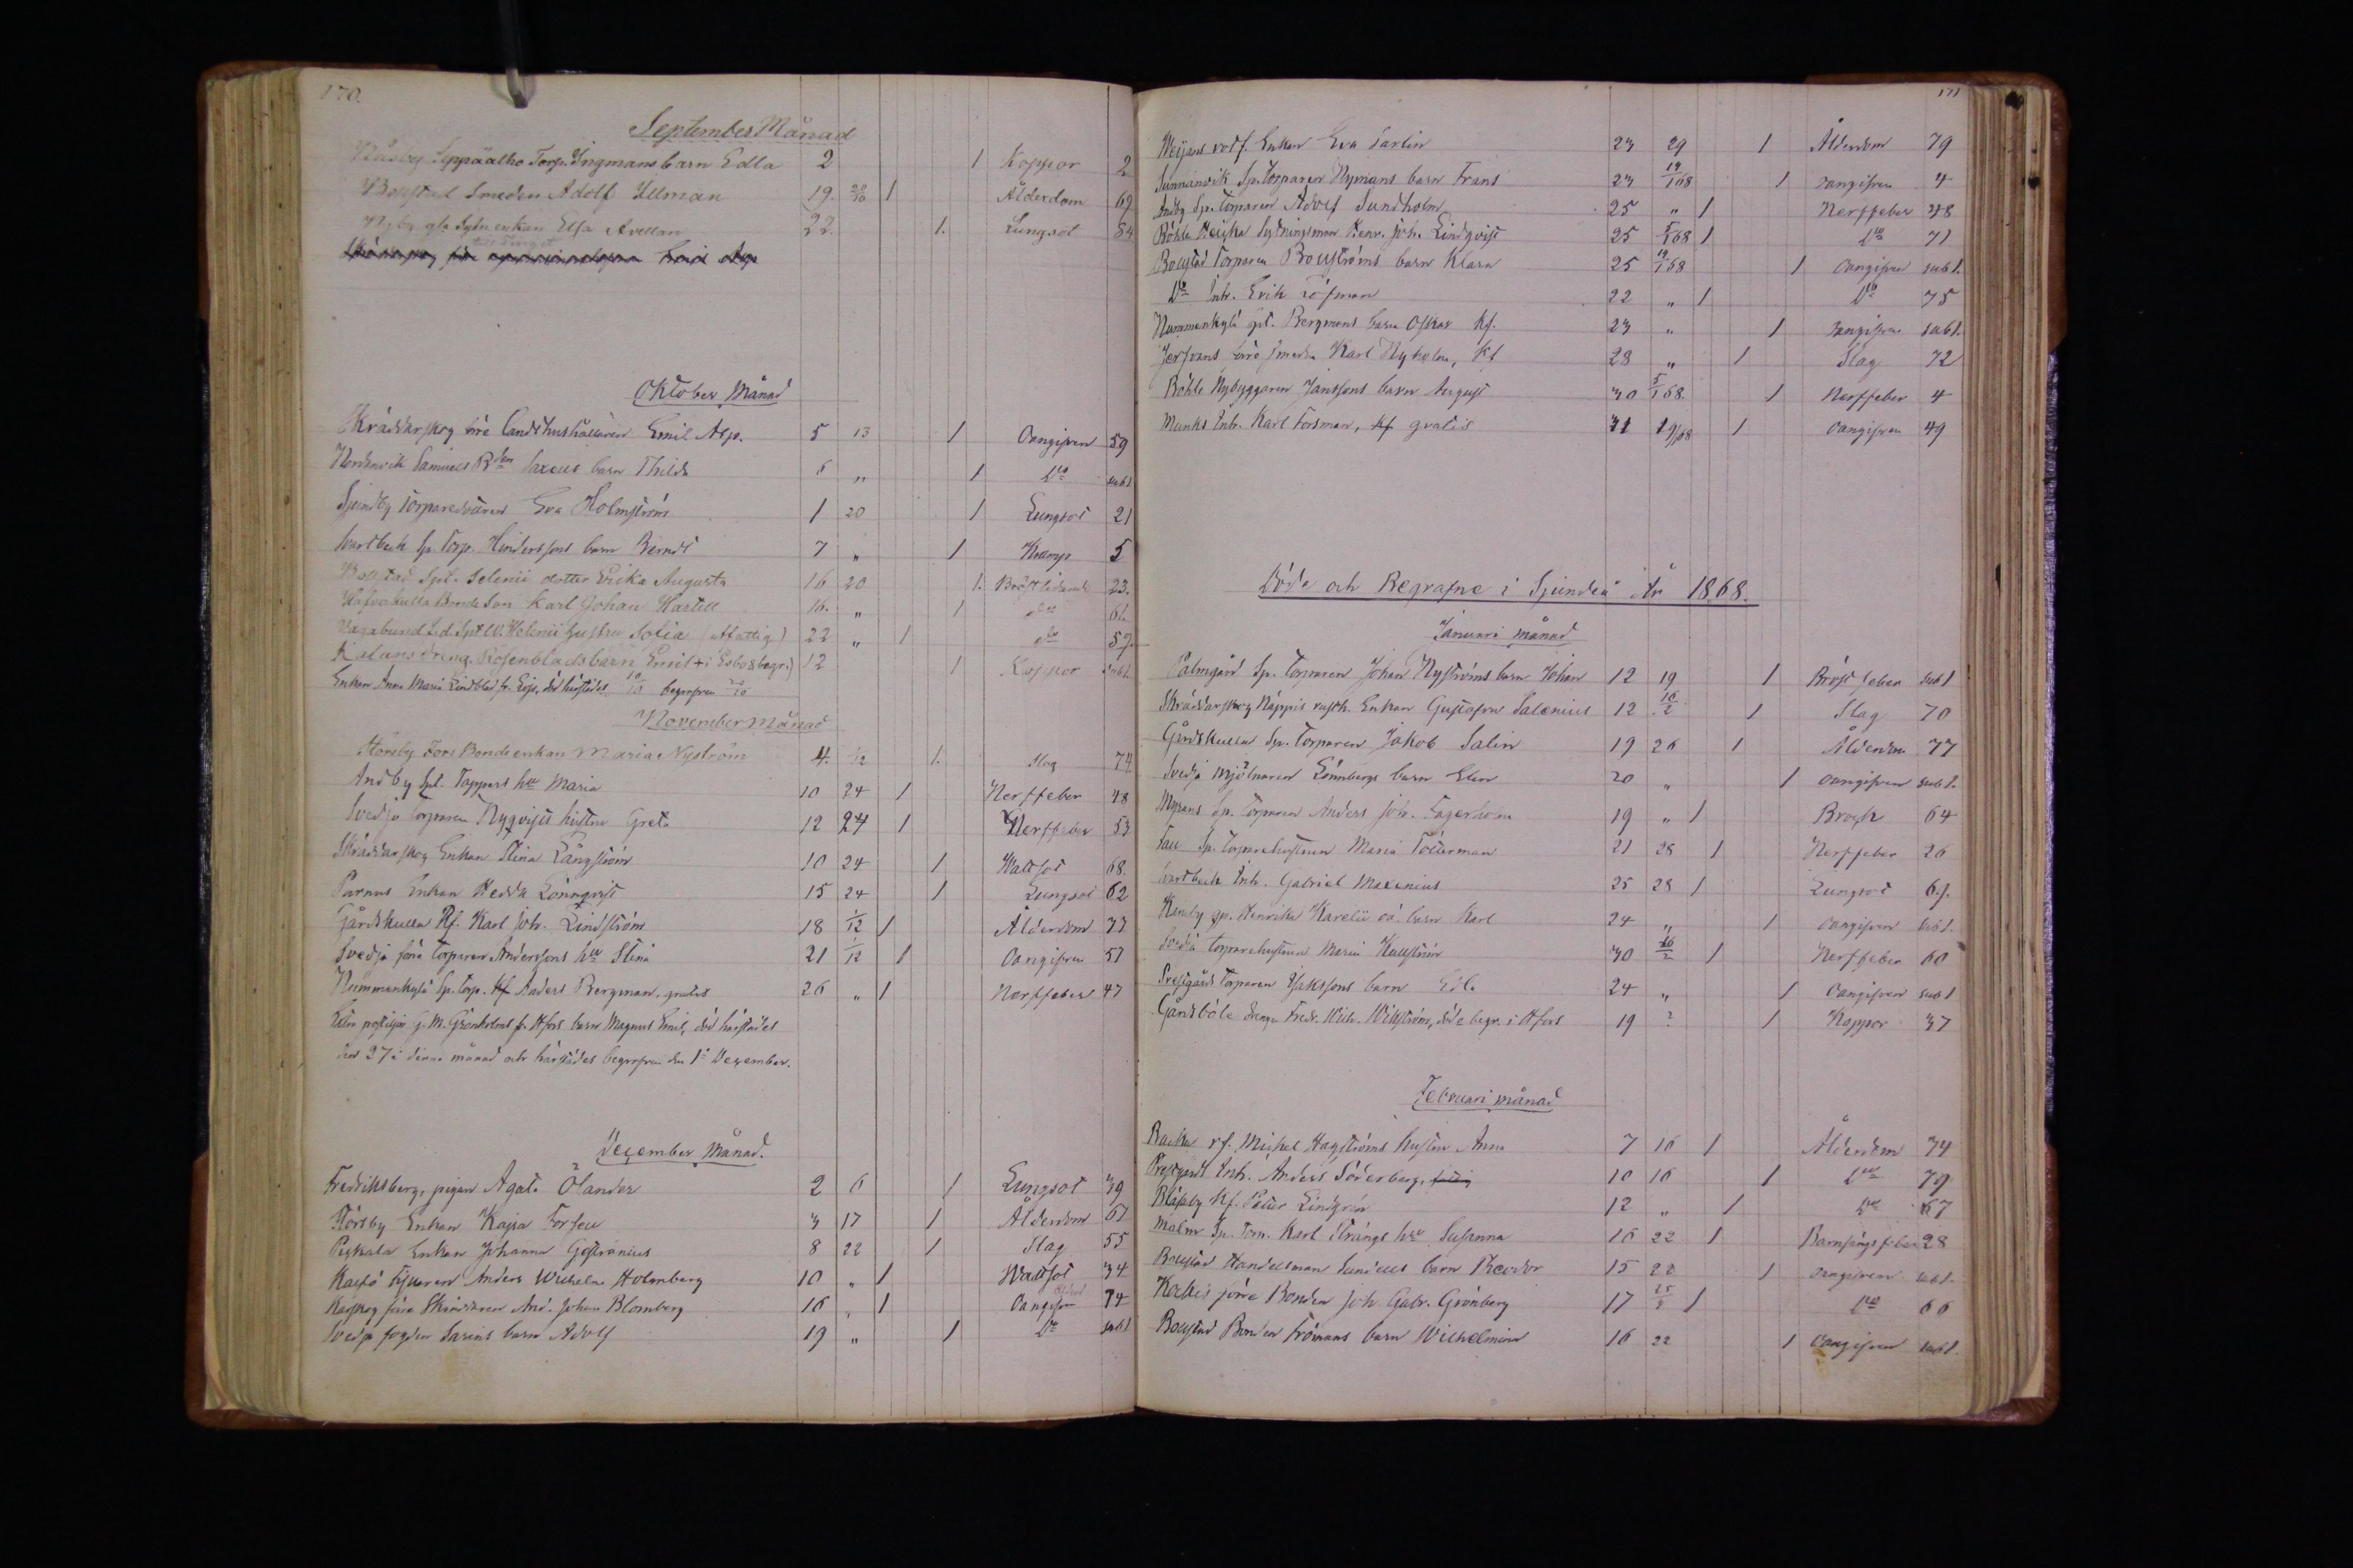 170.
September Månad
Seppäalho Torp. Ingmans barn Edla 2 1 Koppor 2
Böustad Smeden Adolf Ullman 19. 20/10 1 Ålderdom 69
Nyby gla Sytn enkan Elsa Avellan 22. 1. Lungsot 54
Oktober Månad
Skräddarskog före Landthushållaren Emil Asp. 5 13 1 Oangifven 59
Nordanvik Samuels Bdn Saxeus barn Thilda 6 " 1 Do sub 1
Sjundby Torparedottren Eva Holmström 1 20 1 Lungsot 21
Svartbeck Sp. Torp. Hinderssons barn Berndt 7 " 1 Kramp 5
Böustad Spt. Selenii dotter Erika Augusta 16 20 1. Bröstlidande 23.
Bonde Son Karl Johan Hartell 16. " 1 do 61.
Vagabund Spt W. Helenii hustru Sofia (Afattig) 22 " 1 do 57.
Kalans dreng. Rosenblads barn Emil + i Esbo & begr.) 12 1 Koppor sub 1
Enkan Anna Maria Lindblad fr. död härstädes 10/10 begrafven 20/10
November Månad
Störsby Fors Bondeenkan Maria Nyström 4. 1/12 1. Slag 74
Andby Spt. Tappers hu Maria 10 24 1 Nerffeber 48
Svedja Torparen Nyqvists hustru Greta 12 24 1 Nerffeber 53
Skräddarskog Enkan Stina Långström 10 24 1 Wattsot 68.
Parnus Enkan Hedda Lönnqvist 15 24 1 Lungsot 62
Gårdskulla Rf. Karl Joh. Lindström 18 1/12 1 Ålderdom 77
Svedja före Torparen Anderssons hu Stina 21 1/12 1 Oangifven 57
Nummenkylä Sp. Torp. Kf Anders Bergman, gratis 26 " 1 Nerffeber 47
postiljon G. M. Grönholms fr. Hfors barn Magnus Emil, död härstädes
den 27 i denna månad och härstädes begrafven den 1 December.
December Månad.
Fredriksberg, pigan Agata Ölander 2 6 1 Lungsot 39
Störsby Enkan Kajsa Forssell 3 17 1 Ålderdom 67
Pickala Enkan Johanna 8 22 1 Slag 55
Anders Wilhelm Holmberg 10 " 1 Wattsot 34
Karskog före Skräddaren And. Johan Blomberg 16 " 1 Oangifven 74
Svedja fogden Sarins barn Adolf 19 " 1 Do sub 1
171
Weijans rotf. Enkan Eva Sarlin 23 29 1 Ålderdom 79
Sunnanvik Sp. Torparen Nymans barn Frans 23 19/1 68 1 oangifven 4
Andby Sp. Torparen Adolf Sundholm 25 " 1 Nerffeber 48
Böhle Heijka Sytningsman Henr. Joh. Lindqvist 25 5/1 68 1 Do 71
Böustad Torparen Boustroms barn Klara 25 19/1 68 1 Oangifven sub 1.
Do Inh. Erik Löfman 22 " 1 Do 75
Nummenkylä spt. Bergmans barn Oskar Kf. 23 " 1 oangifven sub 1.
före smeden Karl Nyholm, Kf 28 " 1 Slag 72
Böhle Nybyggaren Janssons barn August 30 5/1 68 1 Nerffeber 4
Munks Inh. Karl Forsman, Kf gratis 31 19/1 68 1 oangifven 49
Döde och Begrafne i Sjundeå År 1868.
Januari månad
Palmgård Sp. Torparen Johan Nyströms barn Johan 12 19 1 Bröstfeber sub 1
Skräddarskog Näppis rusth. Enkan Gustafva Salenius 12 16/2 1 Slag 70
Gårdskulla Sp. Torparen Jakob Salin 19 26 1 Ålderdom 77
Svedja mjölnaren Lönnbergs barn Elin 20 " 1 oangifven sub 1.
Myrans Sp. Torparen Anders Joh. Fagerholm 19 " 1 Bråck 64
Sp. Torparehustrun Maria Tötterman 21 28 1 Nerffeber 26
Svartbeck Inh. Gabriel Maxenius 25 28 1 Lungsot 61.
Henrika Karelii oä. barn Karl 24 " 1 oangifven sub 1.
Svedja Torparehustrun Maria Kullström 30 16/2 1 Nerffeber 60
Prestgårds Torparen Isakssons barn Edla 24 " 1 Oangifven sub 1
Gårdsböle drengn Fredr. Wilh. Willström, död & begr. i Hfors 19 ? 1 Koppor 37
Februari månad
Backa rf. Mickel Hagströms hustru Anna 7 16 1 Ålderdom 74
Prestgårds Inh. Anders Söderberg, 10 16 1 Do 79
Bläsaby Kf. Petter Lindgrén 12 " 1 Do 67
Malm Sp. Torp. Karl Strångs hu Susanna 16 22 1 Barnsängsfeber 28
Böustad Handelsman Sundells barn Theodor 15 22 1 Oangifven sub 1.
Kockis före Bonden Joh. Gabr. Grönberg 17 25/2 1 Do 66
Böustad Bonden Frömans barn Wilhelmina 16 22 1 Oangifven sub 1.